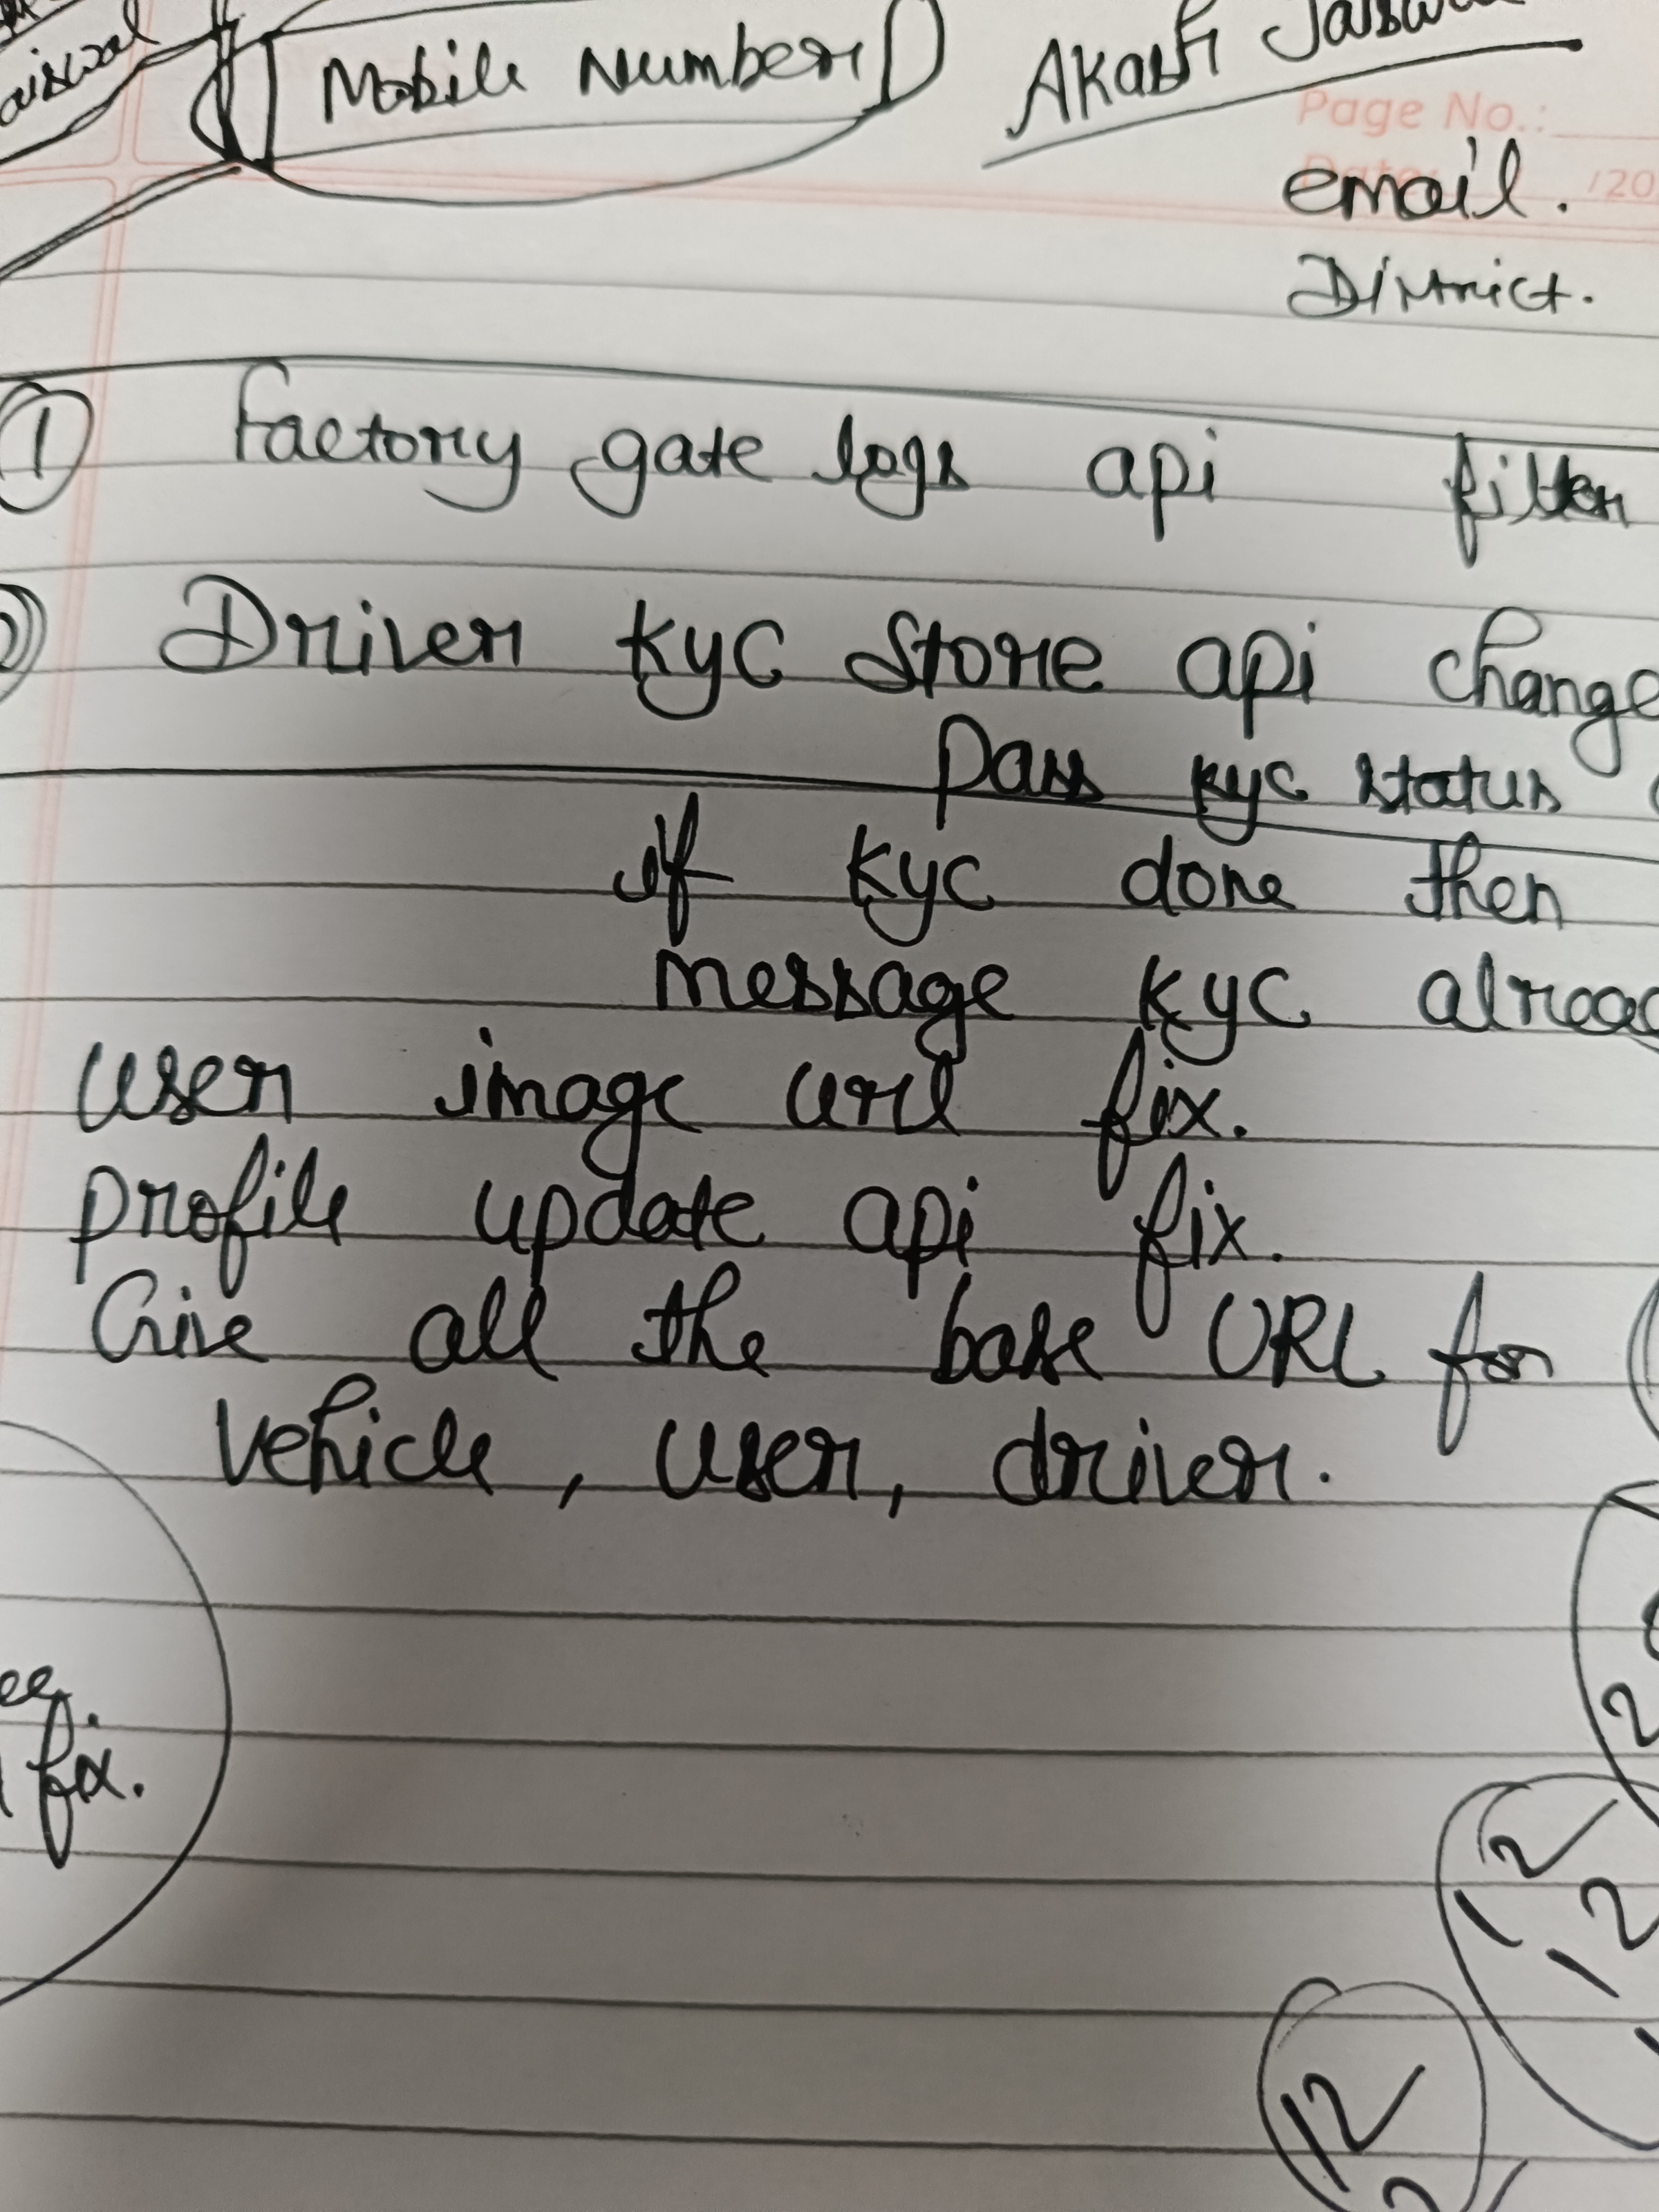 aiswal
Mobile Number
Akash Jaiswal
Page No.:
email.
/20
District.
1 Factory gate logs api filter
Driver kyc Store api change
Pass kyc status
if kyc done then
message kyc alread
user image url fix.
profile update api fix.
Give all the base URL for
vehicle, user, driver.
ee
fix.
2
12
12
12